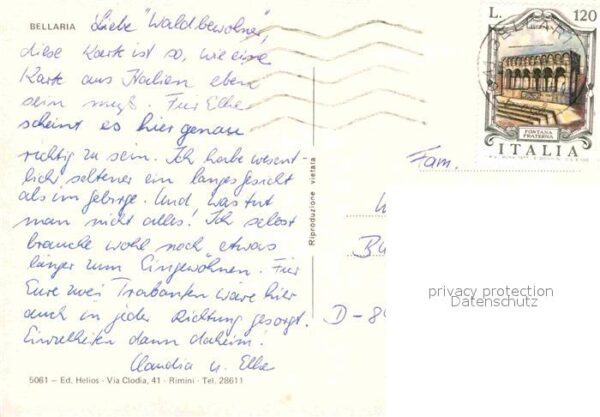 BELLARIA
Liebe "Waldbewohner",
diese Karte ist so, wie eine
Karte aus Italien eben
sein muß. Für Elke
scheint es hier genau
richtig zu sein. Ich habe wesent-
lich seltener ein langes Gesicht
als im Gebirge. Und was tut
man nicht alles! Ich selbst
brauche wohl noch etwas
länger zum Eingewöhnen. Für
Eure zwei Trabanten wäre hier
auch in jeder Richtung gesorgt.
Einzelheiten dann daheim!
Claudia u. Elke
5061 - Ed. Helios - Via Clodia, 41 - Rimini - Tel. 28611
Riproduzione vietata
L. 120
FONTANA
FRATERNA
ITALIA
Fam.
privacy protection
Datenschutz
D-